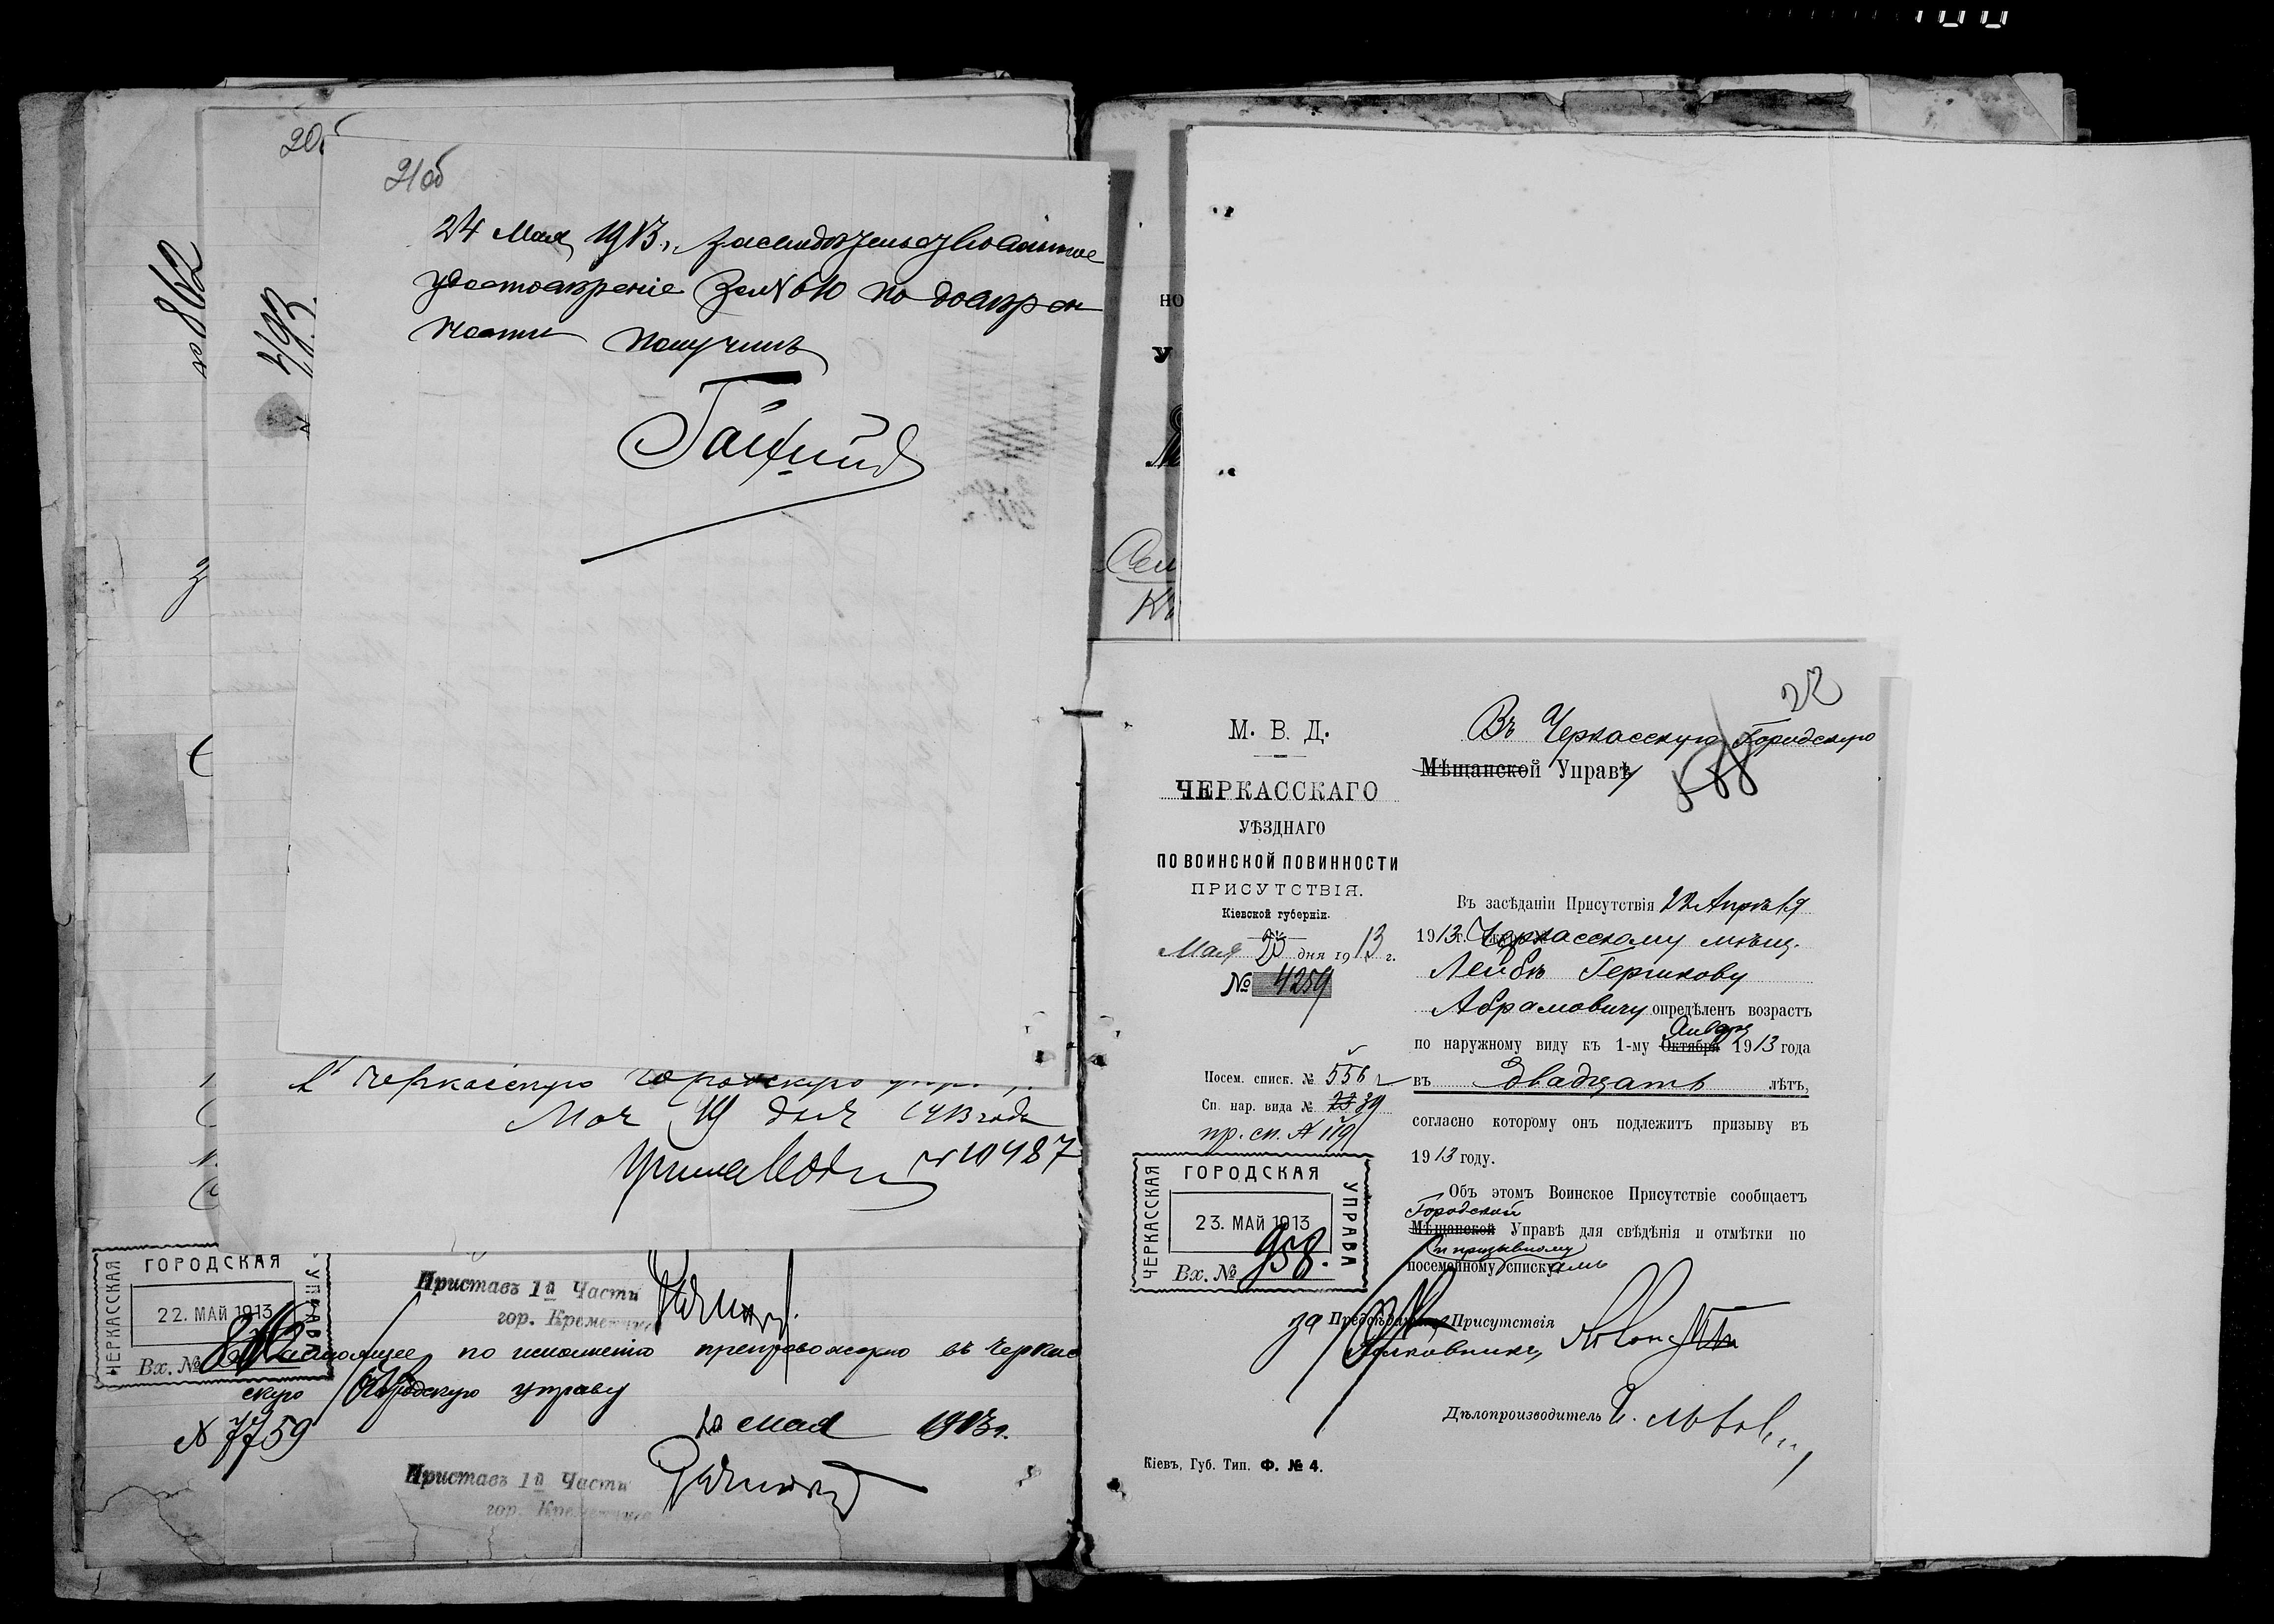 20
21об
№ 862
493.
24 Мая 1913 г. засвидѣтельствованное
удостовѣреніе за № 610 по довѣрен
ности получилъ
въ Черкасскую городскую
Мая 19 дня 1913 года
№ 10487
ЧЕРКАССКАЯ
ГОРОДСКАЯ
УПРАВА
22. МАЙ 1913
Вх. №
Приставъ 1й Части
гор. Кременчуга
Настоящее по исполненіи препровождаю въ Черкас
скую Городскую управу
№ 7759
мая 1913 г.
Приставъ 1й Части
гор. Кременчуга
НО
У
22
М. В. Д.
ЧЕРКАССКАГО
УѢЗДНАГО
ПО ВОИНСКОЙ ПОВИННОСТИ
ПРИСУТСТВІЯ.
Кіевской губерніи.
Мая 23 дня 1913 г.
№ 4259
Посем. списк. № 556
Сп. нар. вида № 23 39
пр. сп. № 119
ЧЕРКАССКАЯ
ГОРОДСКАЯ
УПРАВА
23. МАЙ 1913
Вх. № 958.
Въ Черкасскую Городскую
Мѣщанской Управѣ
Въ засѣданіи Присутствія 22 Апрѣля
1913 г. Черкасскому мѣщ.
Лейбѣ Гершкову
Абрамовичу опредѣленъ возрастъ
Января
по наружному виду къ 1-му Октября 1913 года
въ двадцать лѣтъ,
согласно которому онъ подлежитъ призыву въ
1913 году.
Объ этомъ Воинское Присутствіе сообщаетъ
Городской
Мѣщанской Управѣ для свѣдѣнія и отмѣтки по
и призывному
посемейному спискамъ
за Предсѣдателя Присутствія
Полковникъ
Дѣлопроизводитель
Кіевъ, Губ. Тип. Ф. № 4.